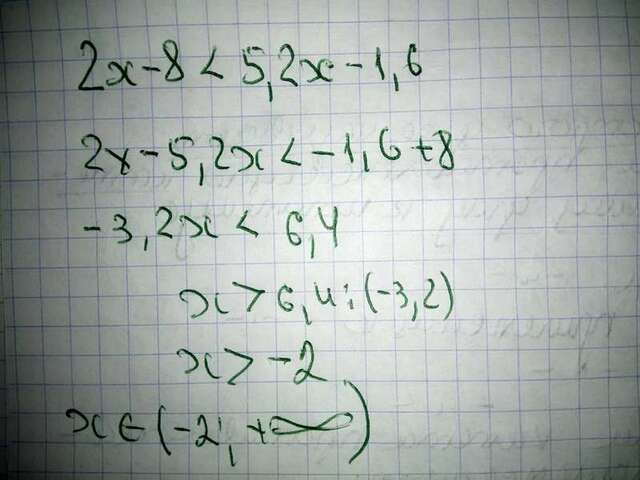 2x-8<5,2x-1,6
2x-5,2x<-1,6+8
-3,2x<6,4
x>6,4:(-3,2)
x>-2
x∈(-2;+∞)